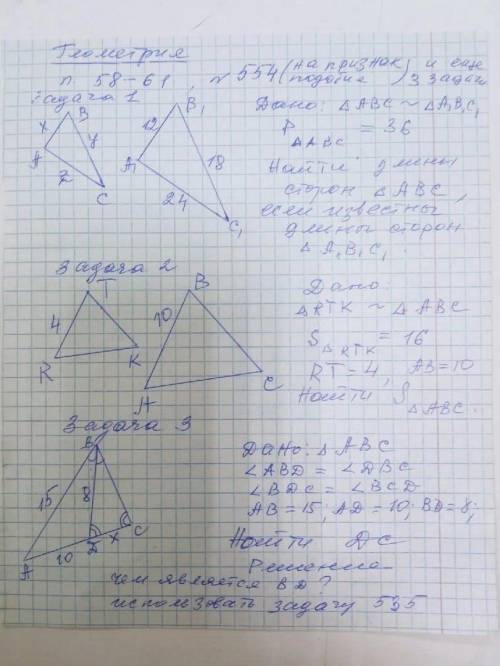 Геометрия
п. 58-61, № 554 (на признак подобия) и еще 3 задачи
Задача 1
B
x
y
A
z
C
B₁
12
A₁
18
24
C₁
Дано: △ABC ~ △A₁B₁C₁
P△ABC = 36
Найти длины
сторон △ABC,
если известны
длины сторон
△A₁B₁C₁.
Задача 2
T
4
R
K
B
10
A
C
Дано:
△RTK ~ △ABC
S△RTK = 16
RT = 4, AB = 10
Найти S△ABC.
Задача 3
B
15
8
A
10
D
x
C
Дано: △ABC
∠ABD = ∠DBC
∠BDC = ∠BCD
AB = 15; AD = 10; BD = 8;
Найти DC
Решение
чем является BD?
использовать задачу 535